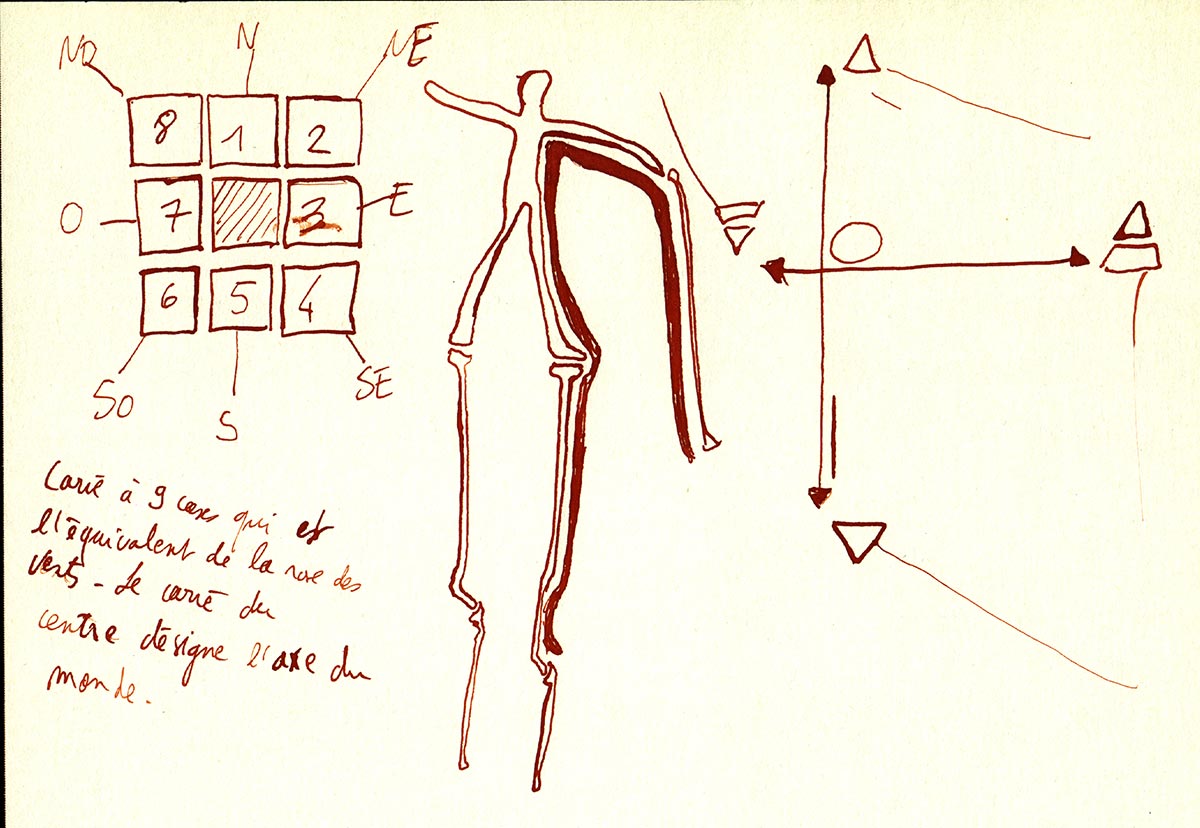 NO N NE
8 1 2
O 7 3 E
6 5 4
SO S SE
Carré à 9 cases qui est
l'équivalent de la rose des
vents - Le carré du
centre désigne l'axe du
monde.